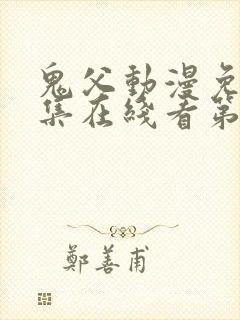 鬼父動漫免
集在綫看第
鄭善甫